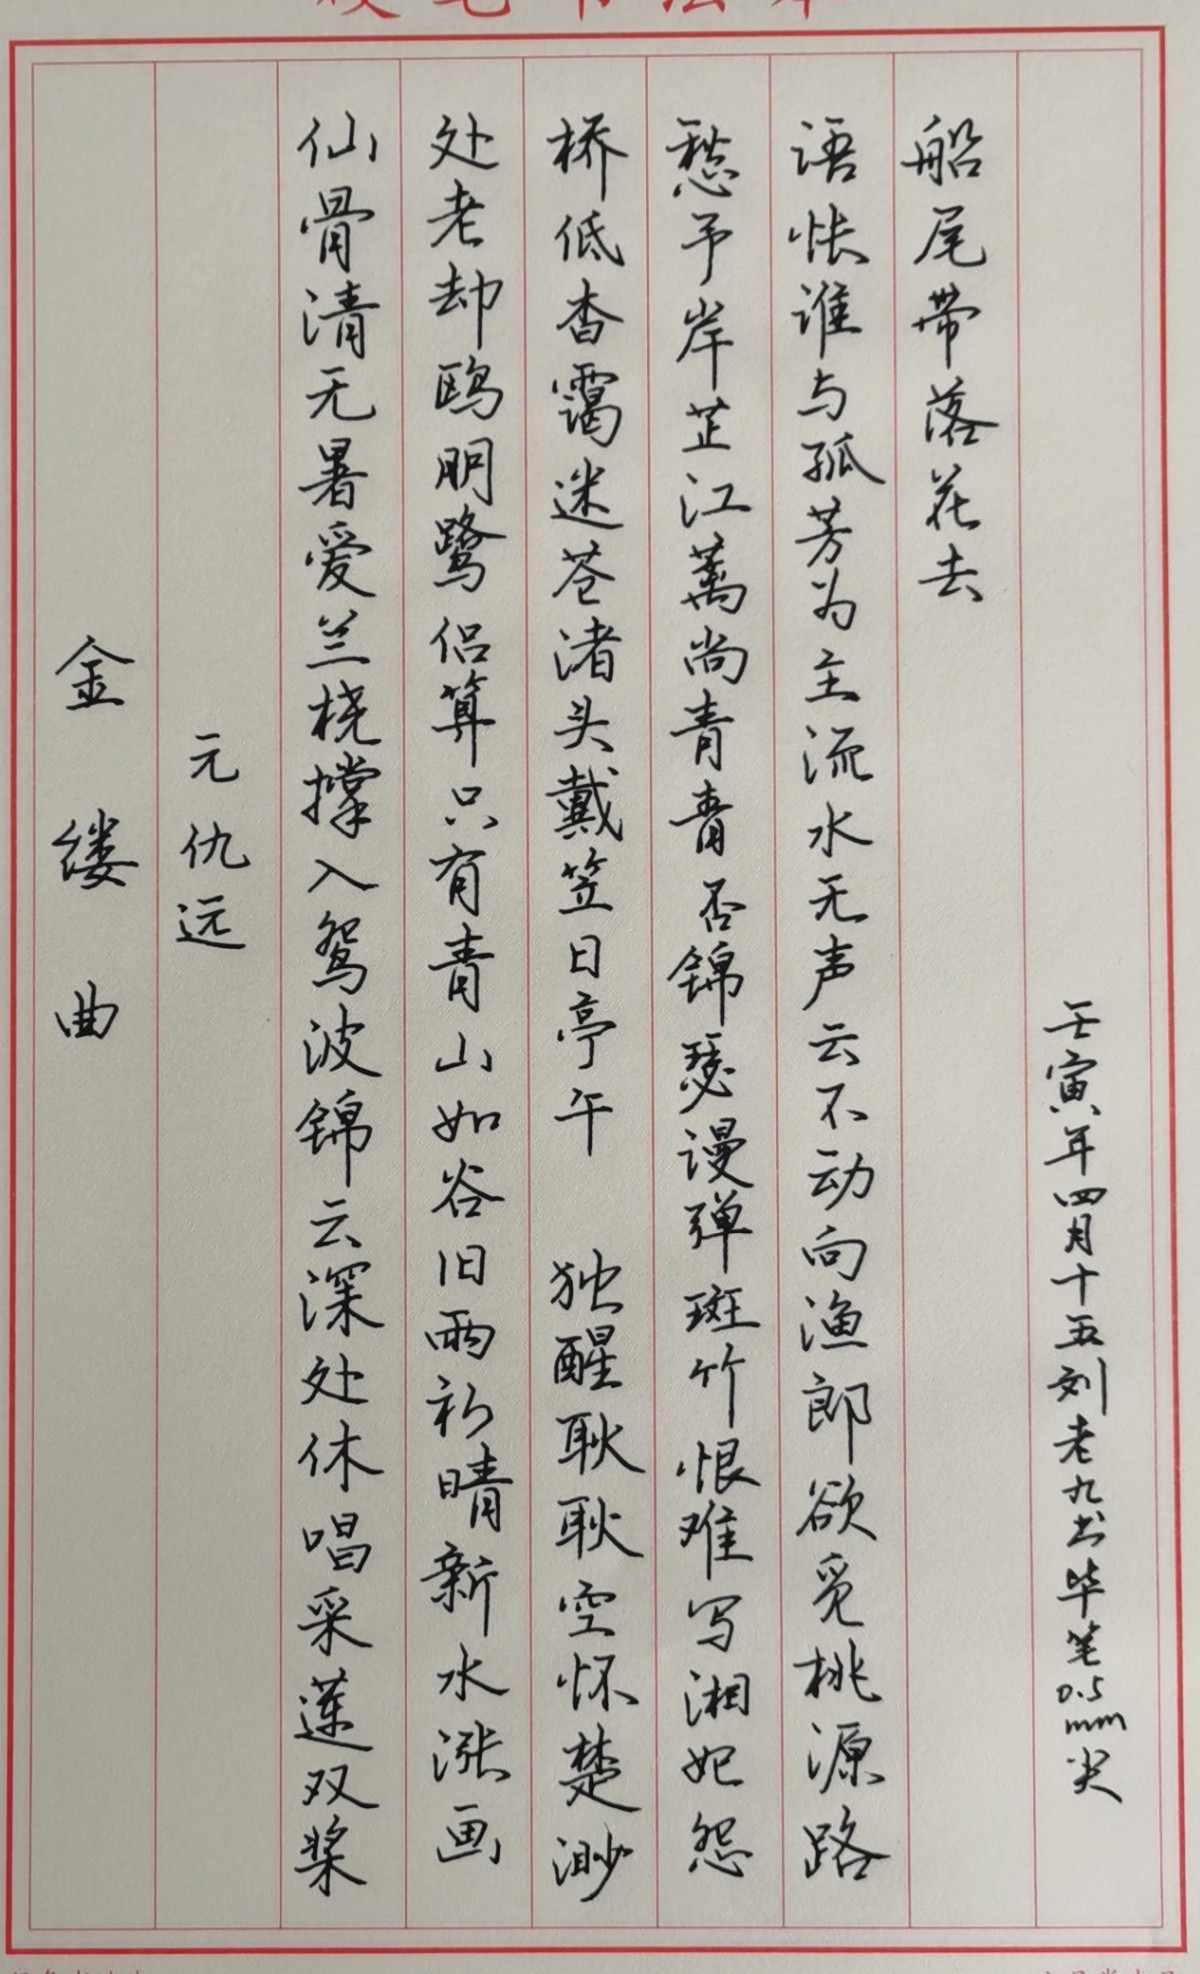 金缕曲
元仇远
仙骨清无暑爱兰桡撑入鸳波锦云深处休唱采莲双桨
处老却鸥朋鹭侣算只有青山如谷旧雨初晴新水涨画
桥低杳霭迷苍渚头戴笠日亭午 独醒耿耿空怀楚渺
愁予岸芷江蓠尚青青否锦瑟谩弹斑竹恨难写湘妃怨
语怅谁与孤芳为主流水无声云不动向渔郎欲觅桃源路
船尾带落花去
壬寅年四月十五刘老九书毕笔0.5mm尖